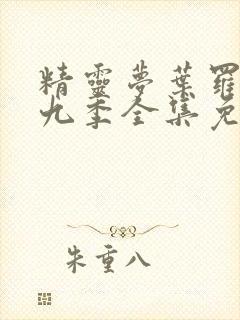 精靈夢葉羅
九季全集免
朱重八